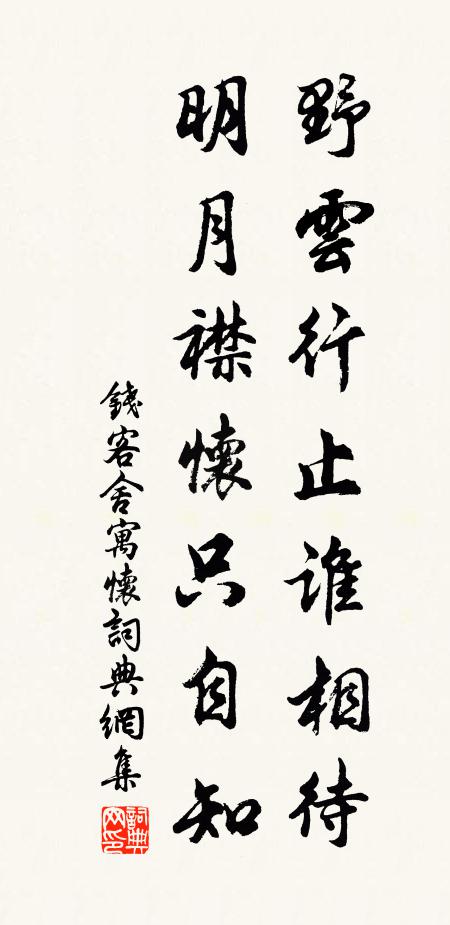 野雲行止誰相待
明月襟懷只自知
錢客舍寓懷詞典網集
詞典網印